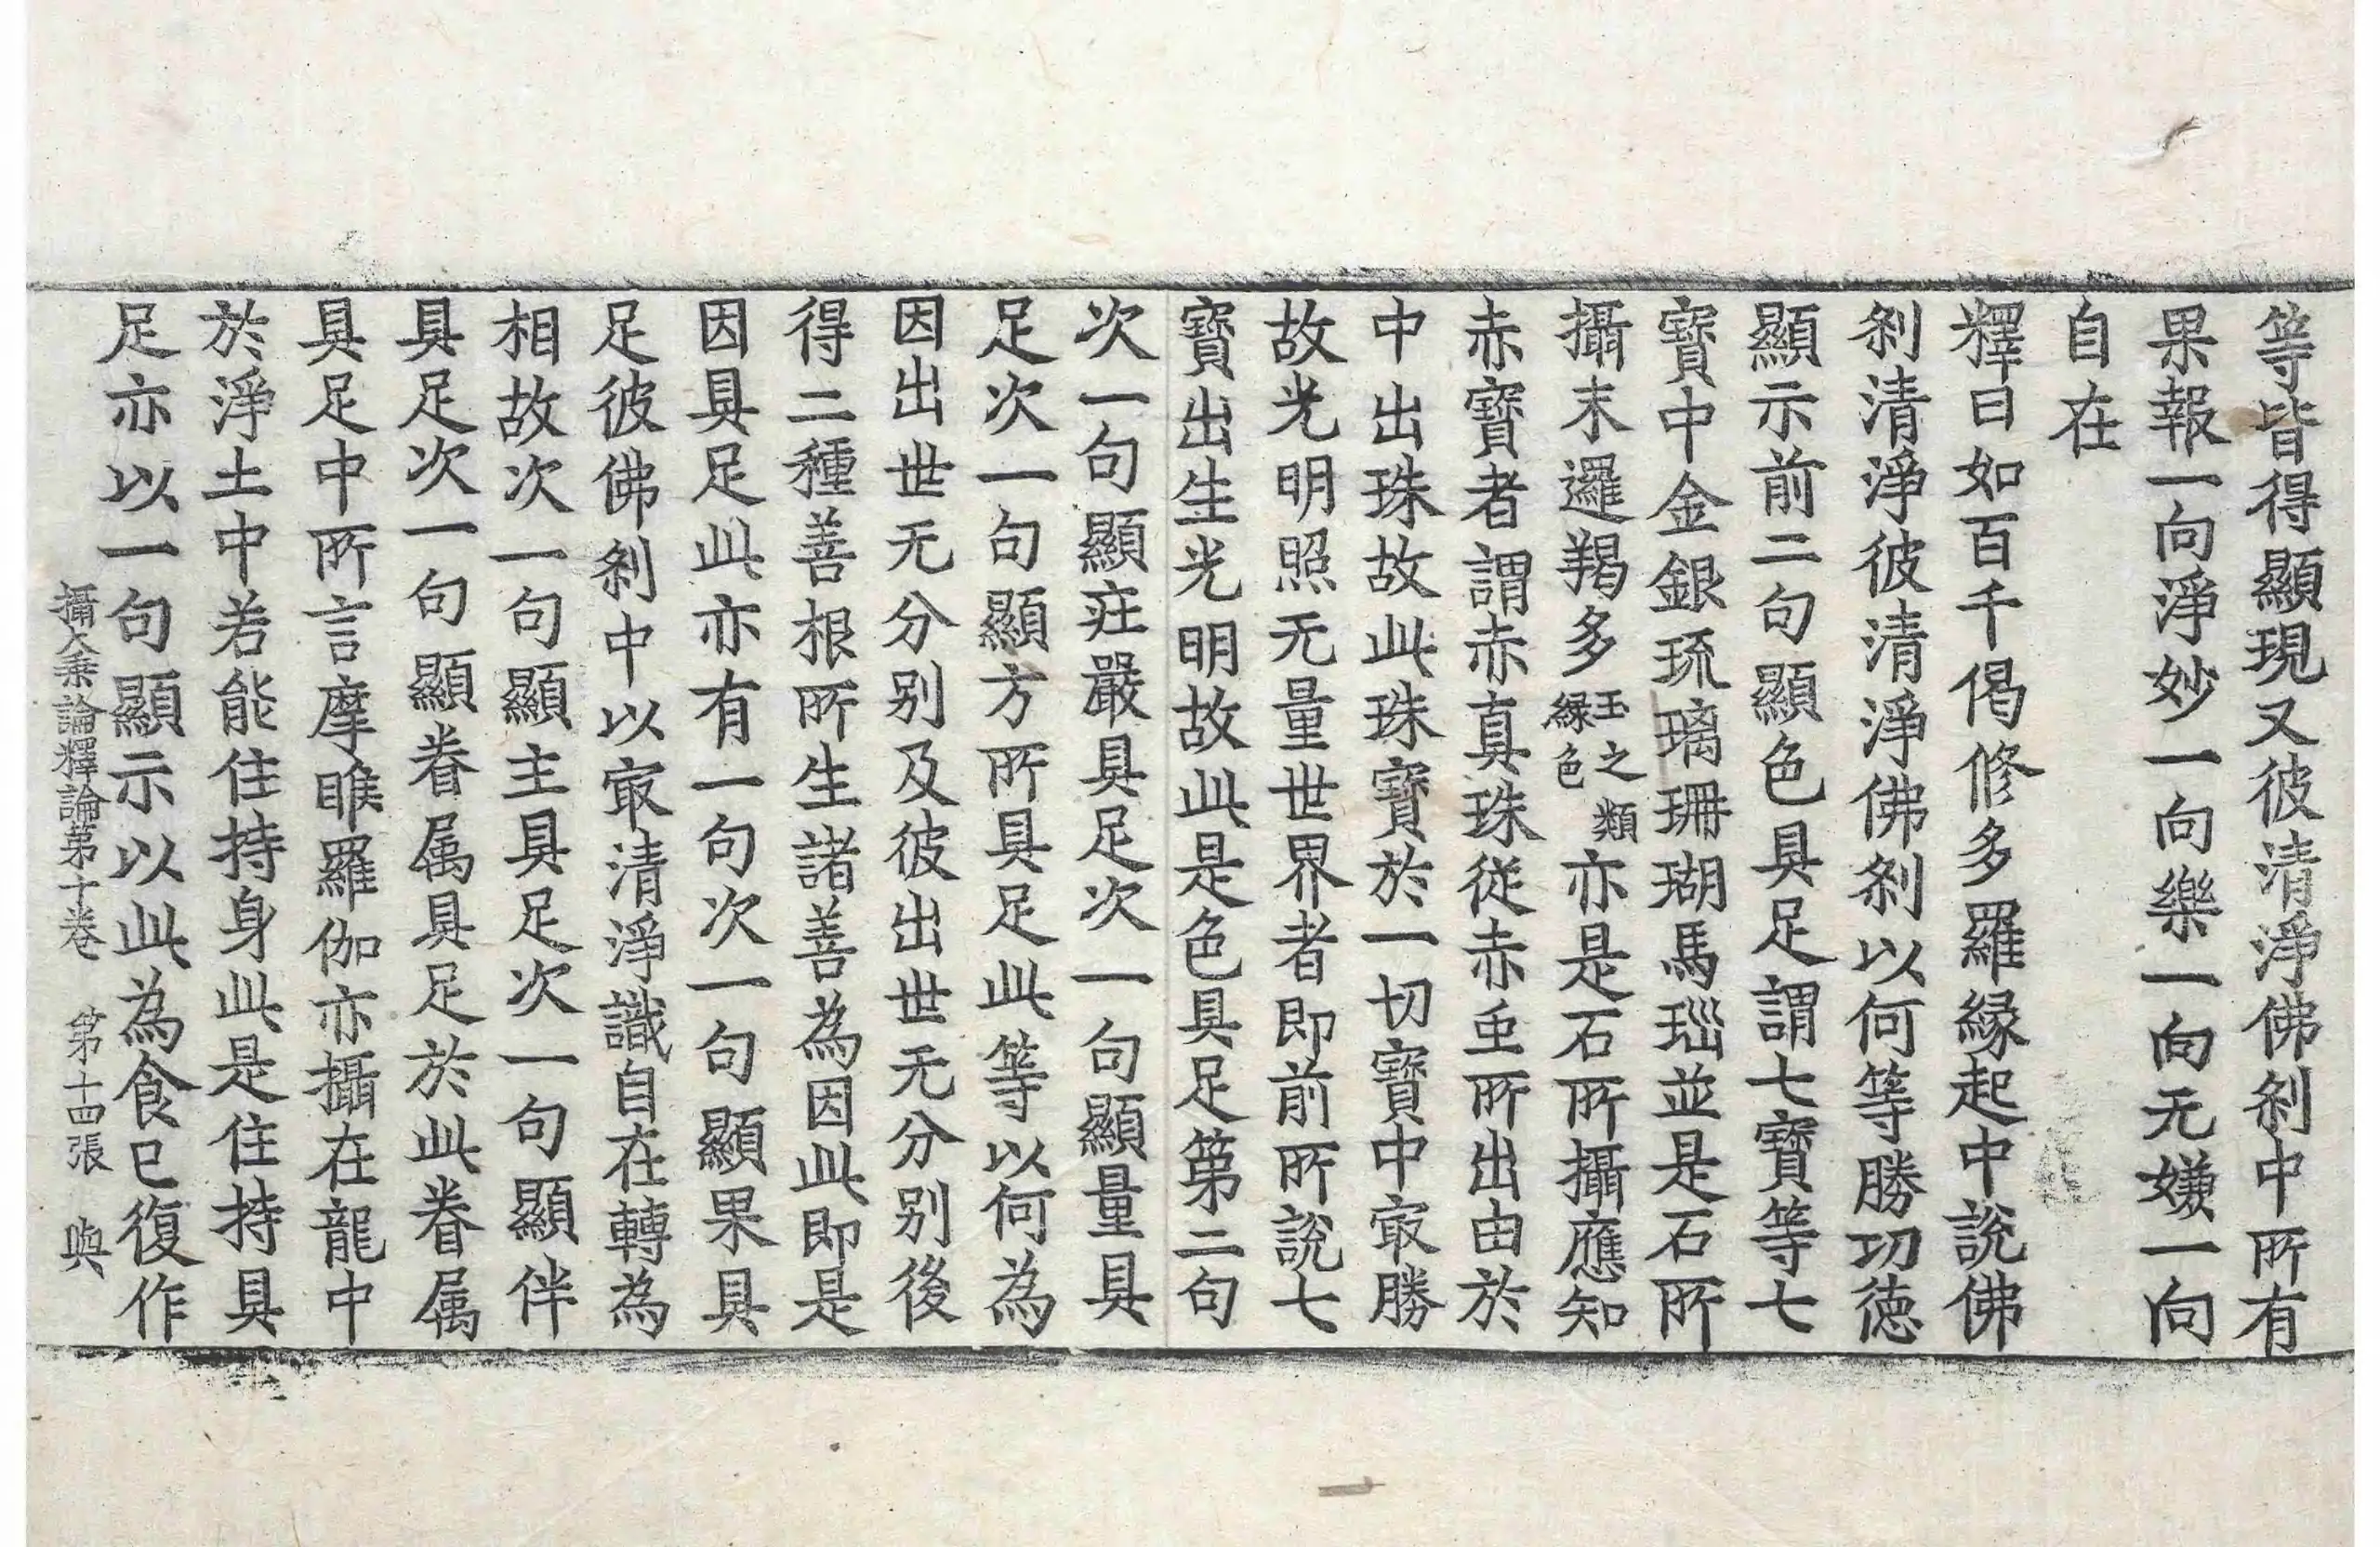 等皆得顯現又彼清淨佛剎中所有
果報一向淨妙一向樂一向无嫌一向
自在
釋曰如百千偈修多羅緣起中說佛
剎清淨彼清淨佛剎以何等勝功德
顯示前二句顯色具足謂七寶等七
寶中金銀琉璃珊瑚馬瑙並是石所
攝末邏羯多玉之類綠色亦是石所攝應知
赤寶者謂赤真珠從赤虫所出由於
中出珠故此珠寶於一切寶中㝡勝
故光明照无量世界者即前所說七
寶出生光明故此是色具足第二句
次一句顯莊嚴具足次一句顯量具
足次一句顯方所具足此等以何為
因出世无分别及彼出世无分别後
得二種善根所生諸善為因此即是
因具足此亦有一句次一句顯果具
足彼佛剎中以㝡清淨識自在轉為
相故次一句顯主具足次一句顯伴
具足次一句顯眷属具足於此眷属
具足中所言摩睺羅伽亦攝在龍中
於淨土中若能住持身此是住持具
足亦以一句顯示以此為食已復作
攝大乗論釋論第十卷 第十四張 與